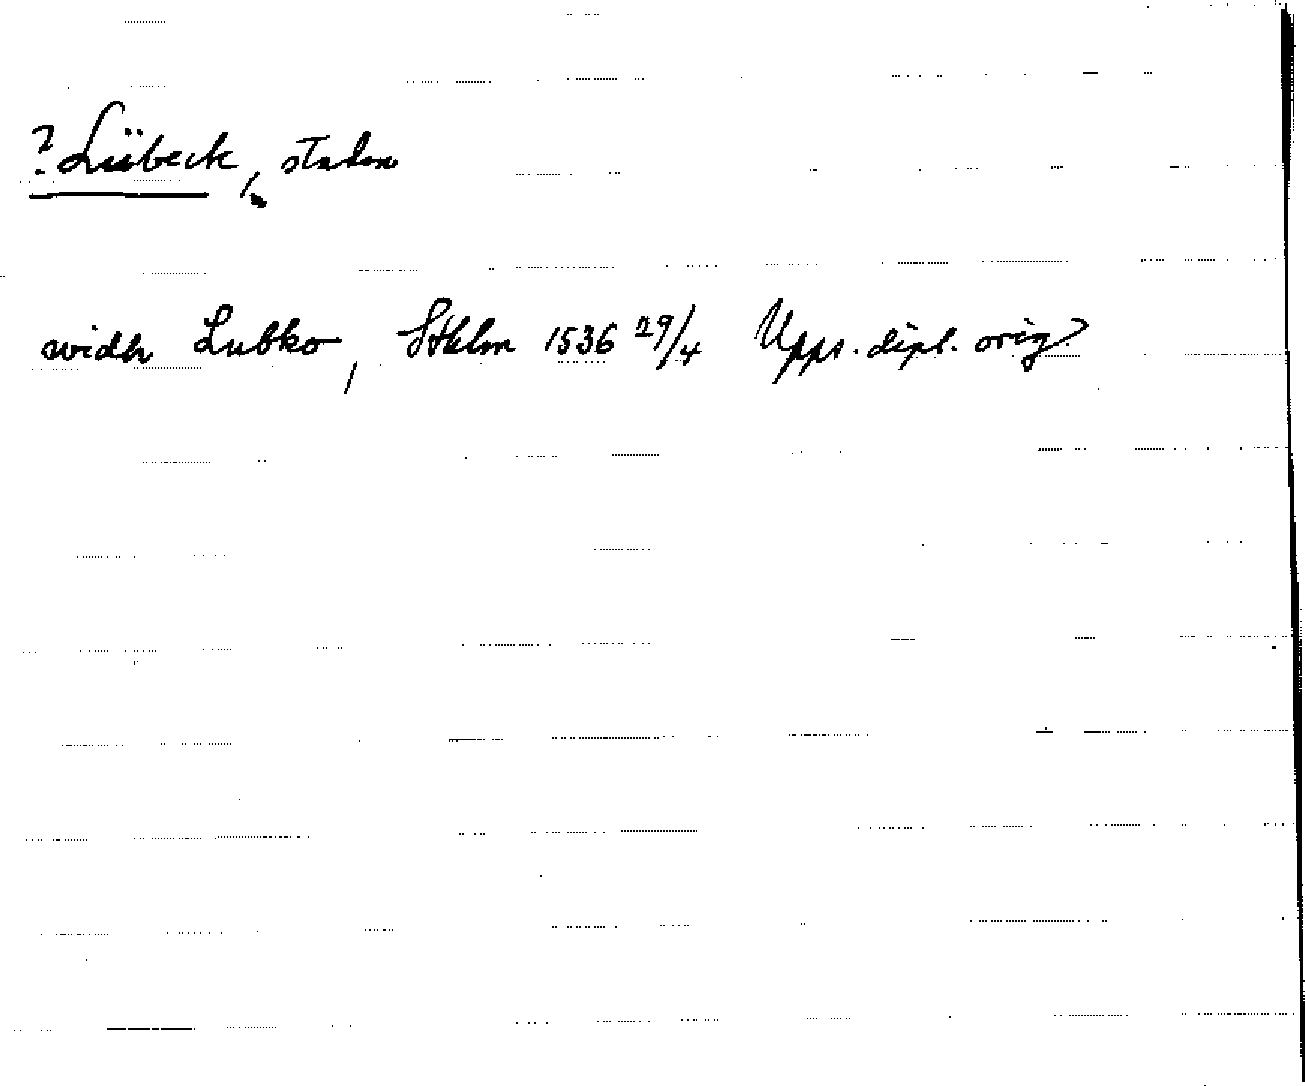 ? Lübeck, staden
widh Lubko, Sthlm 1536 29/4 Upps. dipl. orig